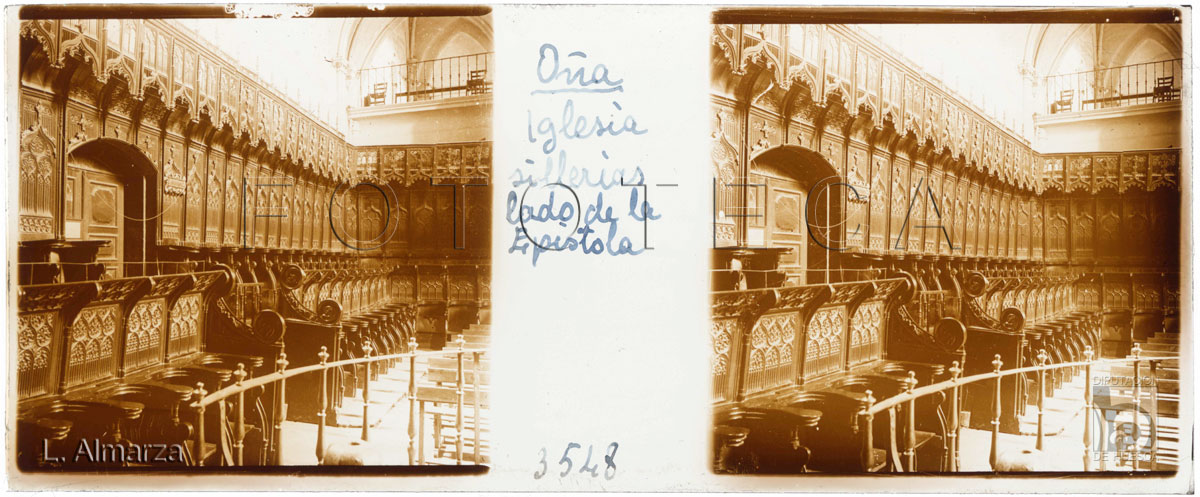 Oña
Iglesia
sillerias
lado de la
Epistola
3548
FOTOTECA
L. Almarza
DIPUTACIÓN
DE HUESCA